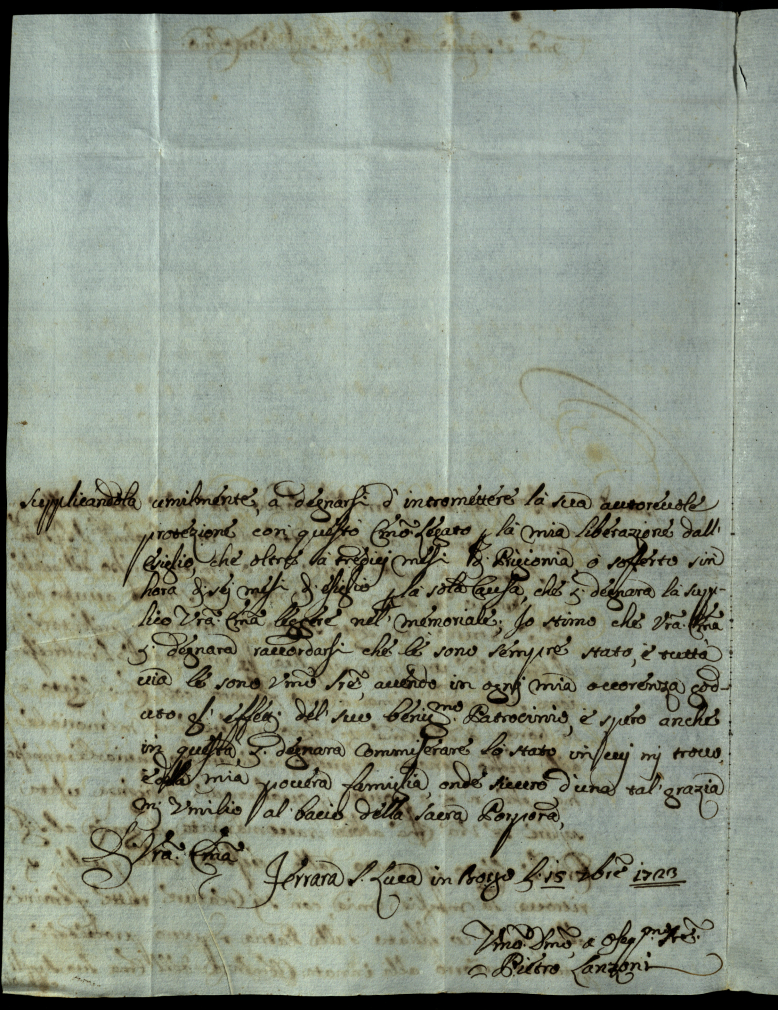 supplicandola umilmente, a degnarsi d'intromettere la sua autorevole
protezione con questo Emo Legato p la mia liberazione dall'
esiglio, che oltre la tredici mesi di Prigionia ò sofferto sin
hora di sei mesi di esiglio p la sola Causa, che si degnarà la supp-
lico Vra. Ema leggere nel memoriale; Io stimo che Vra. Ema
si degnarà raccordarsi che le sono sempre stato, e tutta
via le sono Vmo Sre, avendo in ogni mia occorenza god-
uto gl'effetti del suo benig.mo Patrocinio, e spero anche
in questa, si degnara Commiserare lo stato in cui mi trovo,
e della mia povera famiglia, onde sicuro d'una tal grazia
mi Vmilio al bacio della Sacra Porpora,
D. Vra. Ema
Ferrara S. Luca in Borgo li 15 xbre 1723
Vmo. Vmo, a Osseq.mo Sre.
Pietro Lanzoni